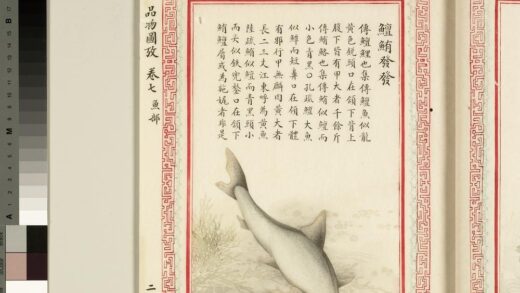 鱣鮪發發
傳鱣鯉也集傳鱣魚似龍
黃色銳頭口在頷下背上
腹下皆有甲大者千餘斤
傳鮪鮥也集傳鮪似鱣而
小色青黑○孔疏鱣大魚
似鱏而短鼻口在頷下體
有邪行甲無鱗肉黃大者
長二三丈江東呼為黃魚
陸疏鮪似鱣而青黑頭小
而尖似鐵兜鍪口在頷下
鮪鱣屬或為者非是
品物圖攷 卷七 魚部 二
M
A